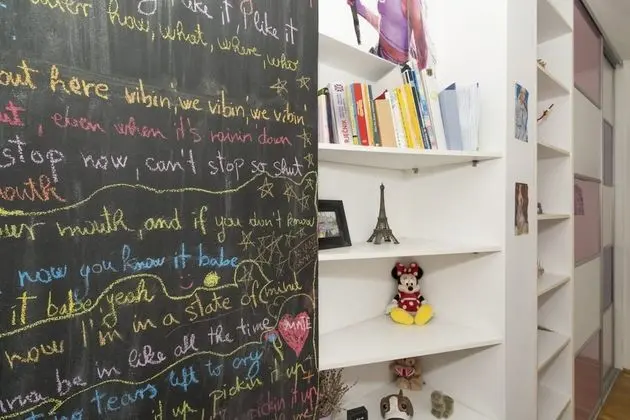 how, what, where, who
out here vibin', we vibin', we vibin'
, even when it's rainin down
stop now, can't stop so shut
mouth
mouth, and if you don't know
now you know it babe
it babe yeah
now I'm in a state of mind
be in like all the time
tears left to cry
Pickin it up
up Pickin it up